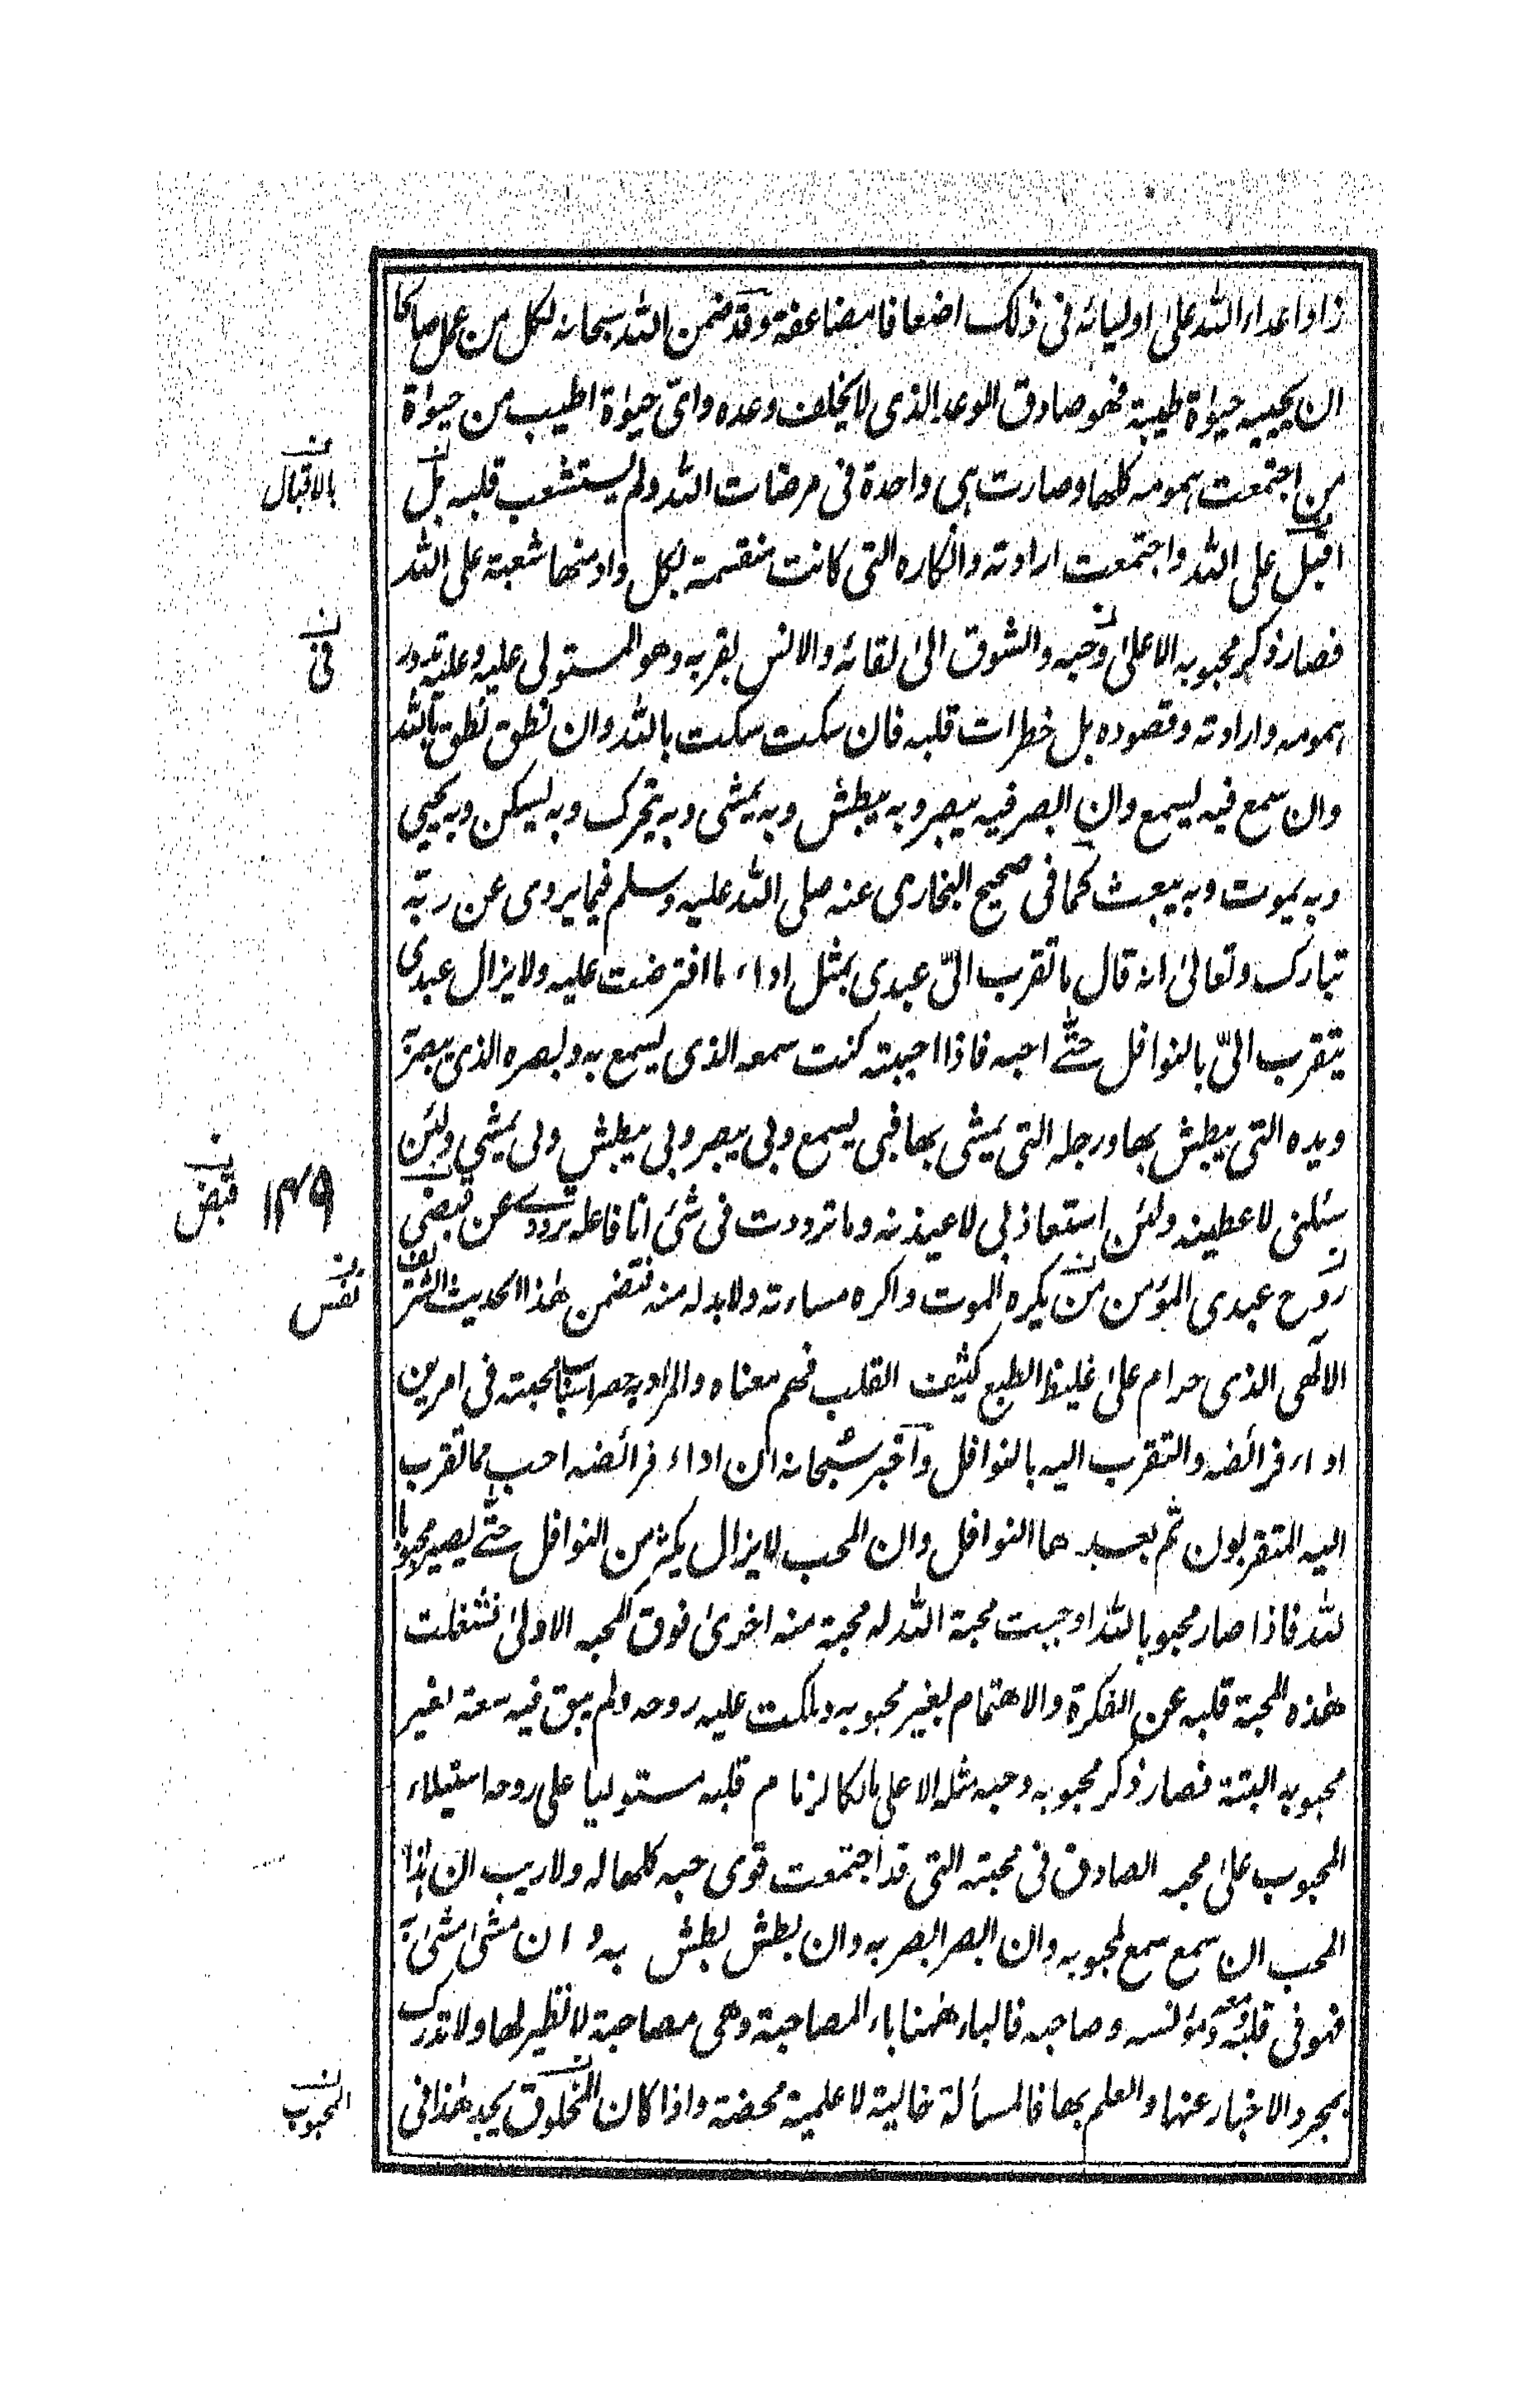 زاد اعداء الله على اوليائه فى ذلك اضعافا مضاعفة وقد ضمن الله سبحانه لكل من عمل صالحا
ان يحييه حيوٰة طيبة فهو صادق الوعد الذى لا يخلف وعده واىّ حيوٰة اطيب من حيوٰة
من اجتمعت همومه كلها وصارت هى واحدة فى مرضات الله ولم يستشعب قلبه بل
اقبل على الله واجتمعت ارادته وافكاره التى كانت منقسمة لكل واد منها شعبة على الله
فصار ذكر محبوبه الاعلىٰ وحبه والشوق الىٰ لقائه والانس بقربه وهو المستولى عليه وعليه تدور
همومه وارادته وقصوده بل خطرات قلبه فان سكت سكت بالله وان نطق نطق بالله
وان سمع فيه يسمع وان ابصر فيه يبصر وبه يبطش وبه يمشى وبه يتحرك وبه يسكن وبه يحيى
وبه يموت وبه يبعث كما فى صحيح البخارى عنه صلى الله عليه وسلم فيما يروى عن ربّه
تبارك وتعالىٰ انه قال ما تقرب الىّ عبدى بمثل اداء ما افترضت عليه ولا يزال عبدى
يتقرب الىّ بالنوافل حتّٰى احبه فاذا احببته كنت سمعه الذى يسمع به وبصره الذى يبصر به
ويده التى يبطش بها ورجله التى يمشى بها فبى يسمع وبى يبصر وبى يبطش وبى يمشى ولئن
سئلنى لاعطينه ولئن استعاذ بى لاعيذنه وما ترددت فى شئ انا فاعله ترددى عن قبضى
روح عبدى المؤمن من يكره الموت واكره مساءته ولا بد له منه فتضمن هٰذا الحديث الشريف
الالٓهى الذى حرام علىٰ غليظ الطبع كثيف القلب فهم معناه والمراد به حصر اسباب محبته فى امرين
اداء فرائضه والتقرب اليه بالنوافل واخبر سبحانه ان اداء فرائضه احب مما تقرب
اليه المتقربون ثم بعدها النوافل وان المحب لا يزال يكثر من النوافل حتّٰى يصير محبوبا
لله فاذا صار محبوبا لله اوجبت محبة الله له محبة منه اخرىٰ فوق المحبه الاولىٰ فشغلت
هٰذه المحبة قلبه عن الفكرة والاهتمام بغير محبوبه وملكت عليه روحه ولم يبق فيه سعة لغير
محبوبه البتة فصار ذكر محبوبه وحبه مثله الاعلى مالكا لزمام قلبه مستوليا على روحه استيلاء
المحبوب علىٰ محبه الصادق فى محبته التى قد اجتمعت قوى حبه كلها له ولا ريب ان هٰذا
المحب ان سمع سمع لمحبوبه وان ابصر ابصر به وان بطش بطش به وان مشىٰ مشىٰ به
فهو فى قلبه ومعه ومؤنسه وصاحبه فالباء ههنا باء المصاحبة وهى مصاحبة لا نظير لها ولا تدرك
بمجرد الاخبار عنها والعلم بها فالمسألة حالية لا علمية محضة واذا كان المخلوق يجد هٰذا فى
بالاقبال
فى
١٣٩ قبض
نفس
المحبوب